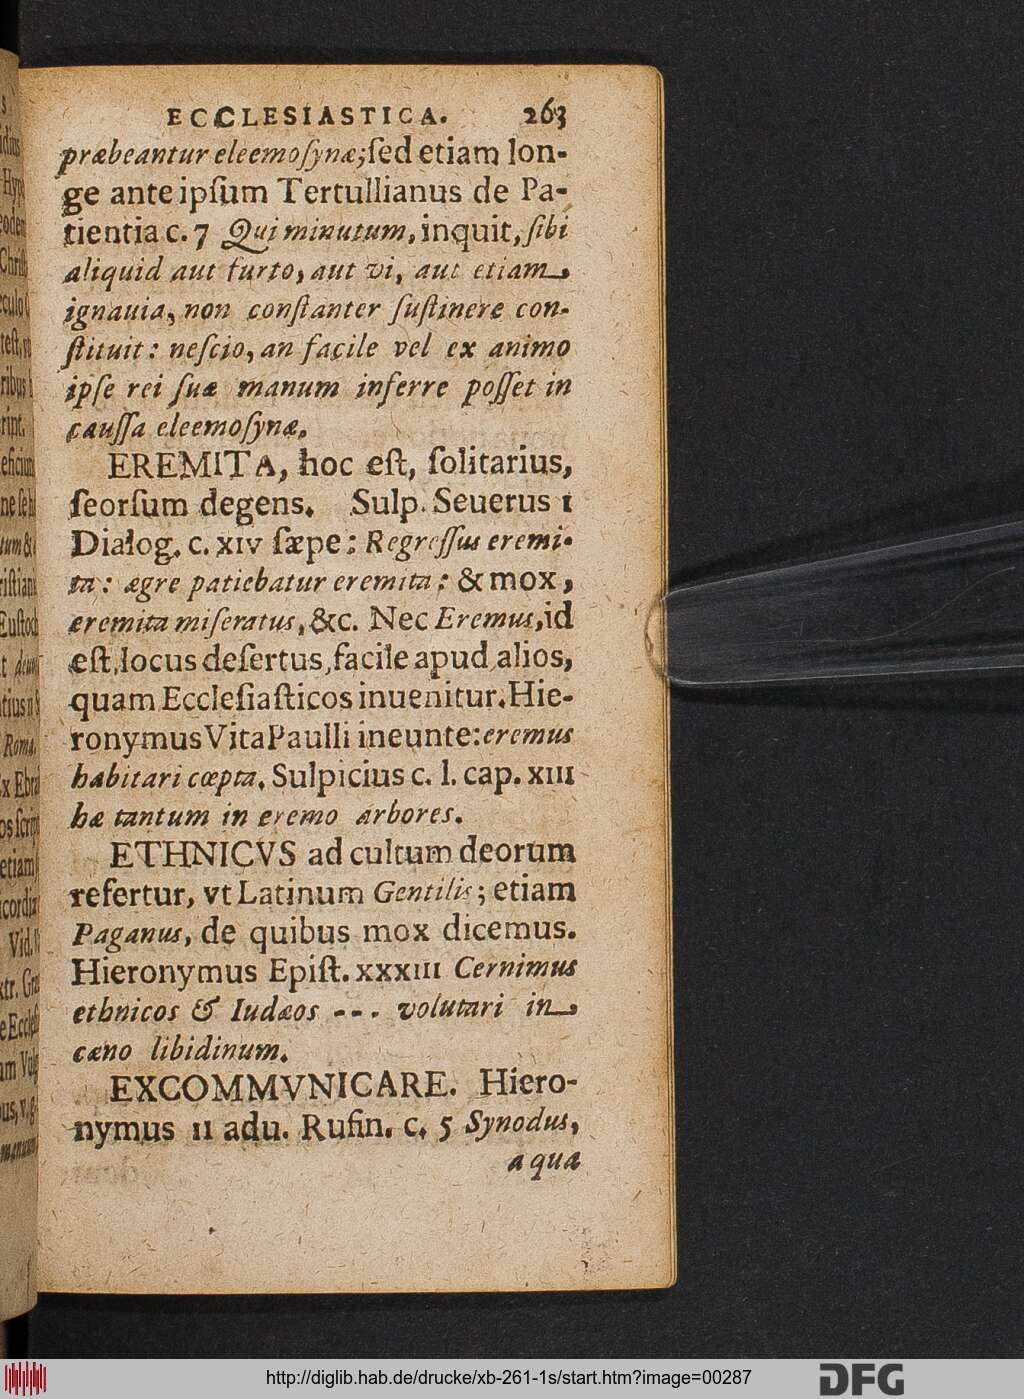 ECCLESIASTICA. 263
præbeantur eleemoſynæ; ſed etiam lon-
ge ante ipſum Tertullianus de Pa-
tientia c. 7 Qui minutum, inquit, ſibi
aliquid aut furto, aut vi, aut etiam
ignauia, non conſtanter ſuſtinere con-
ſtituit: neſcio, an facile vel ex animo
ipſe rei ſuæ manum inferre poſſet in
cauſſa eleemoſynæ.
EREMITA, hoc eſt, ſolitarius,
ſeorſum degens. Sulp. Seuerus 1
Dialog. c. XIV ſæpe: Regreſſus eremi-
ta: ægre patiebatur eremita: & mox,
eremita miſeratus, &c. Nec Eremus, id
eſt, locus deſertus, facile apud alios,
quam Eccleſiaſticos inuenitur. Hie-
ronymus Vita Paulli ineunte: eremus
habitari cœpta. Sulpicius c. l. cap. XIII
hæ tantum in eremo arbores.
ETHNICVS ad cultum deorum
refertur, vt Latinum Gentilis; etiam
Paganus, de quibus mox dicemus.
Hieronymus Epiſt. XXXIII Cernimus
ethnicos & Iudæos --. volutari in
cæno libidinum.
EXCOMMVNICARE. Hiero-
nymus II adu. Rufin. c. 5 Synodus,
a qua
http://diglib.hab.de/drucke/xb-261-1s/start.htm?image=00287
DFG